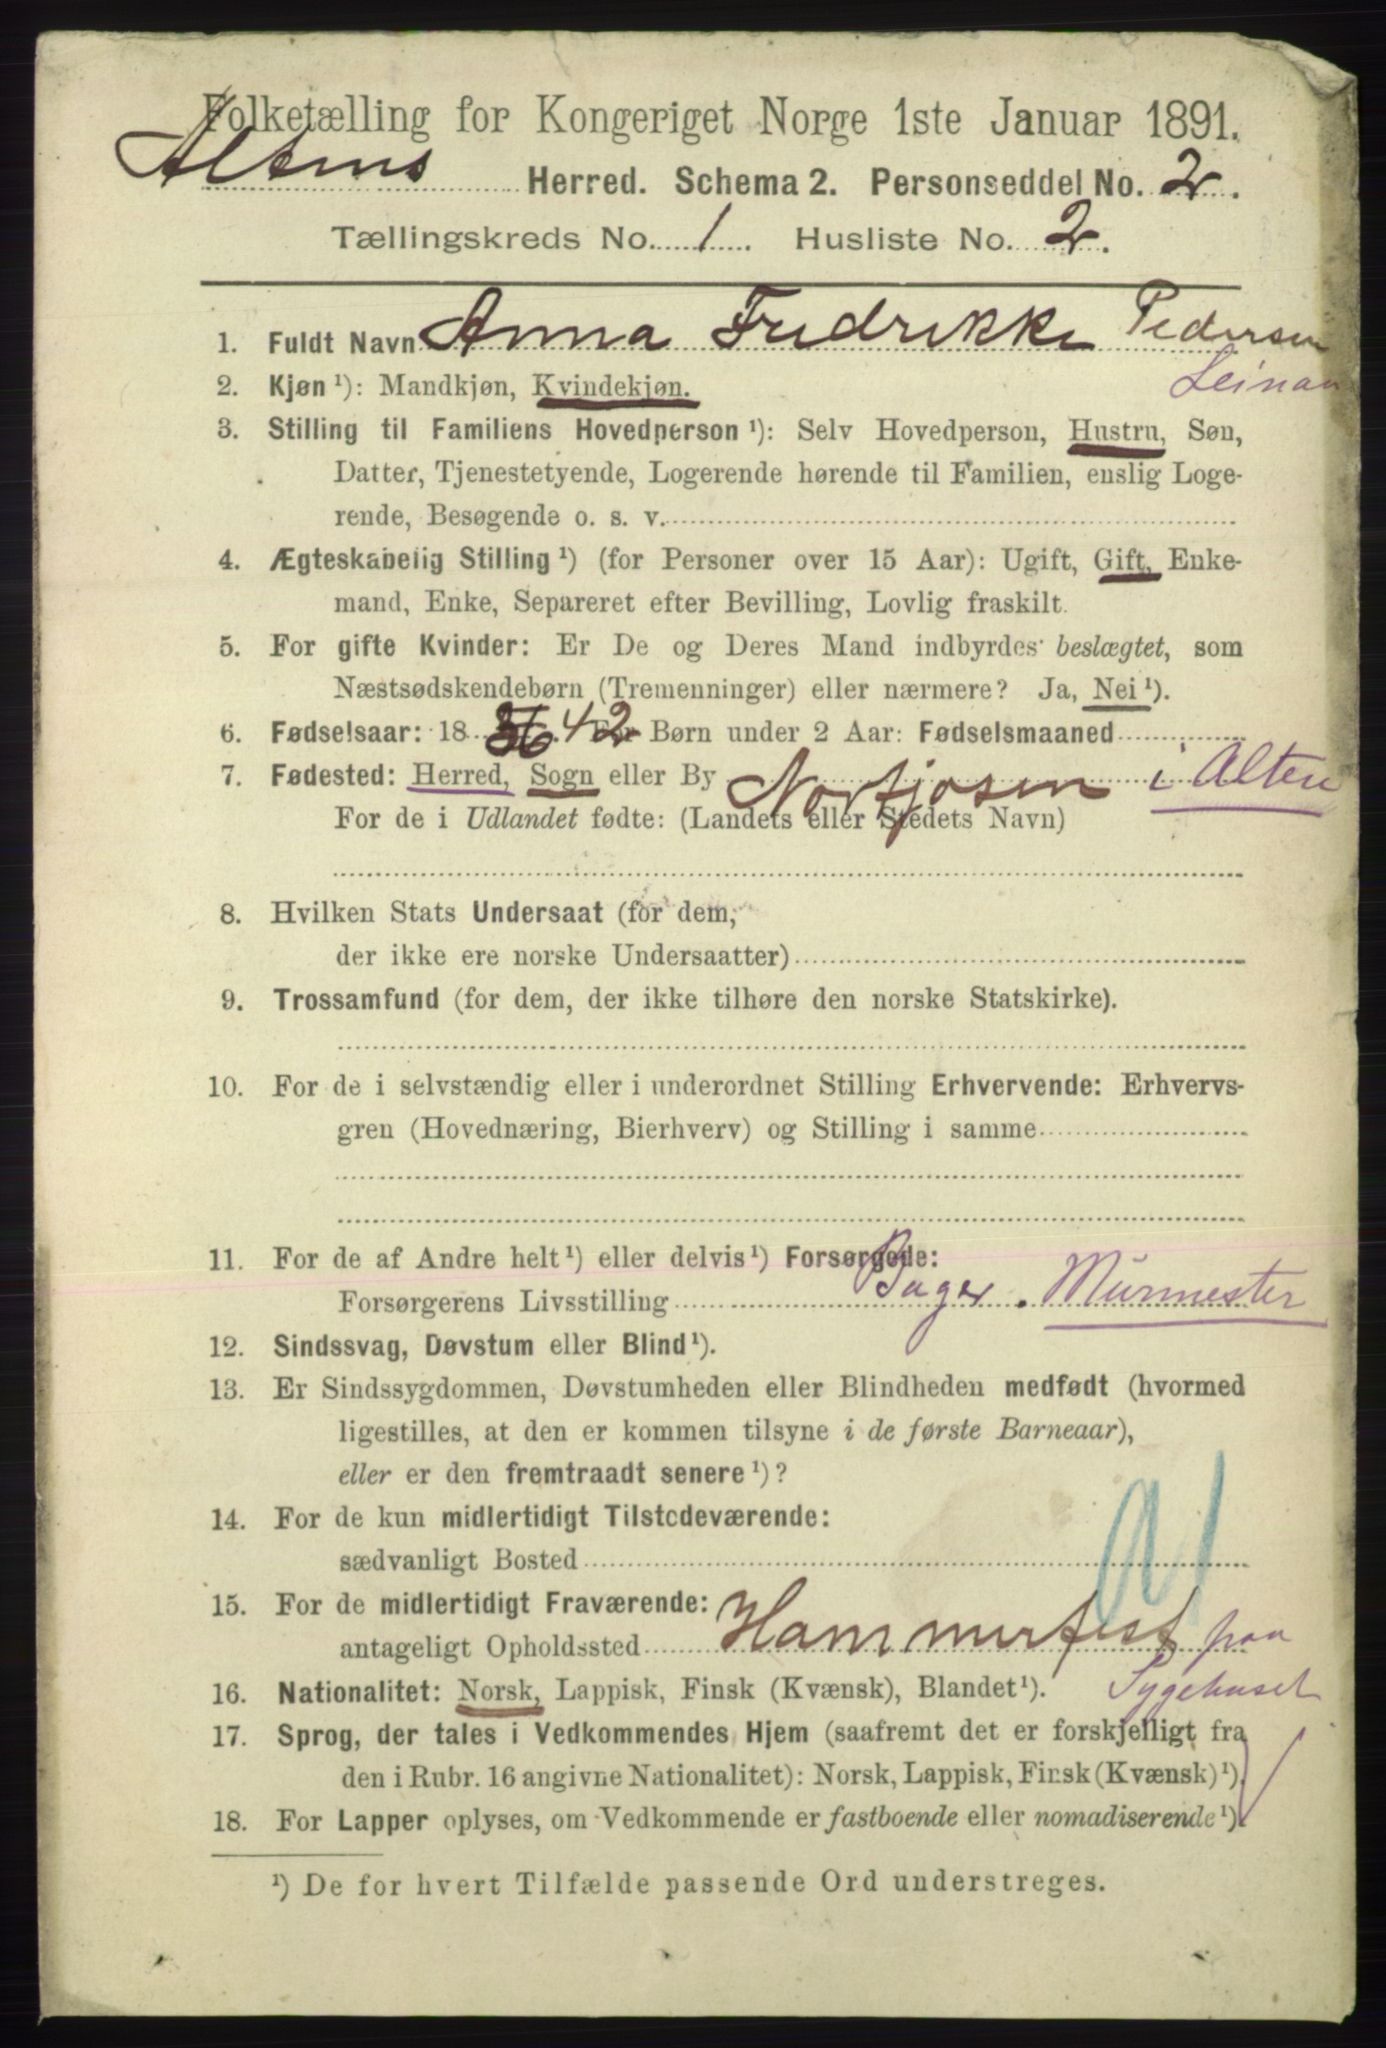 Folketælling for Kongeriget Norge 1ste Januar 1891.
Altens Herred. Schema 2. Personseddel No. 2.
Tællingskreds No. 1. Husliste No. 2.
1. Fuldt Navn Anna Fredrikke Pedersen
2. Kjøn ¹): Mandkjøn, Kvindekjøn.
3. Stilling til Familiens Hovedperson ¹): Selv Hovedperson, Hustru, Søn,
Datter, Tjenestetyende, Logerende hørende til Familien, enslig Loge-
rende, Besøgende o. s. v.
4. Ægteskabelig Stilling ¹) (for Personer over 15 Aar): Ugift, Gift, Enke-
mand, Enke, Separeret efter Bevilling, Lovlig fraskilt.
5. For gifte Kvinder: Er De og Deres Mand indbyrdes beslægtet, som
Næstsødskendebørn (Tremenninger) eller nærmere? Ja, Nei ¹).
6. Fødselsaar: 18 42 For Børn under 2 Aar: Fødselsmaaned
7. Fødested: Herred, Sogn eller By i Alten
For de i Udlandet fødte: (Landets eller Stedets Navn)
8. Hvilken Stats Undersaat (for dem,
der ikke ere norske Undersaatter)
9. Trossamfund (for dem, der ikke tilhøre den norske Statskirke).
10. For de i selvstændig eller i underordnet Stilling Erhvervende: Erhvervs-
gren (Hovednæring, Bierhverv) og Stilling i samme
11. For de af Andre helt ¹) eller delvis ¹) Forsørgede:
Forsørgerens Livsstilling Bager. Murmester
12. Sindssvag, Døvstum eller Blind ¹).
13. Er Sindssygdommen, Døvstumheden eller Blindheden medfødt (hvormed
ligestilles, at den er kommen tilsyne i de første Barneaar),
eller er den fremtraadt senere ¹)?
14. For de kun midlertidigt Tilstedeværende:
sædvanligt Bosted
15. For de midlertidigt Fraværende:
antageligt Opholdssted Hammerfest paa
Sygehuset
16. Nationalitet: Norsk, Lappisk, Finsk (Kvænsk), Blandet ¹).
17. Sprog, der tales i Vedkommendes Hjem (saafremt det er forskjelligt fra
den i Rubr. 16 angivne Nationalitet): Norsk, Lappisk, Finsk (Kvænsk) ¹).
18. For Lapper oplyses, om Vedkommende er fastboende eller nomadiserende ¹).
¹) De for hvert Tilfælde passende Ord understreges.